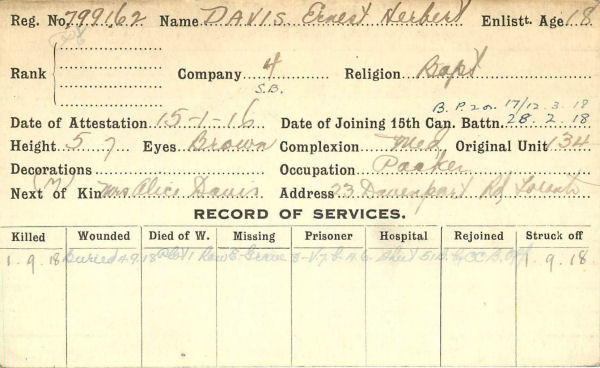 Reg. No. 799162 Name DAVIS Ernest Herbert Enlistt. Age 18
Rank Company 4 Religion Bapt
S.B.
B.P. 2 on 17/12.3.18
Date of Attestation 15-1-16 Date of Joining 15th Can. Battn. 28.2.18
Height 5 7 Eyes Brown Complexion Med Original Unit 134
Decorations Occupation Packer
(M)
Next of Kin Mrs Alice Davis Address 33 Davenport Rd, Toronto
RECORD OF SERVICES.
Killed Wounded Died of W. Missing Prisoner Hospital Rejoined Struck off
1.9.18 Buried 4.9.18 Plot 1 Row E Grave 1.9.18